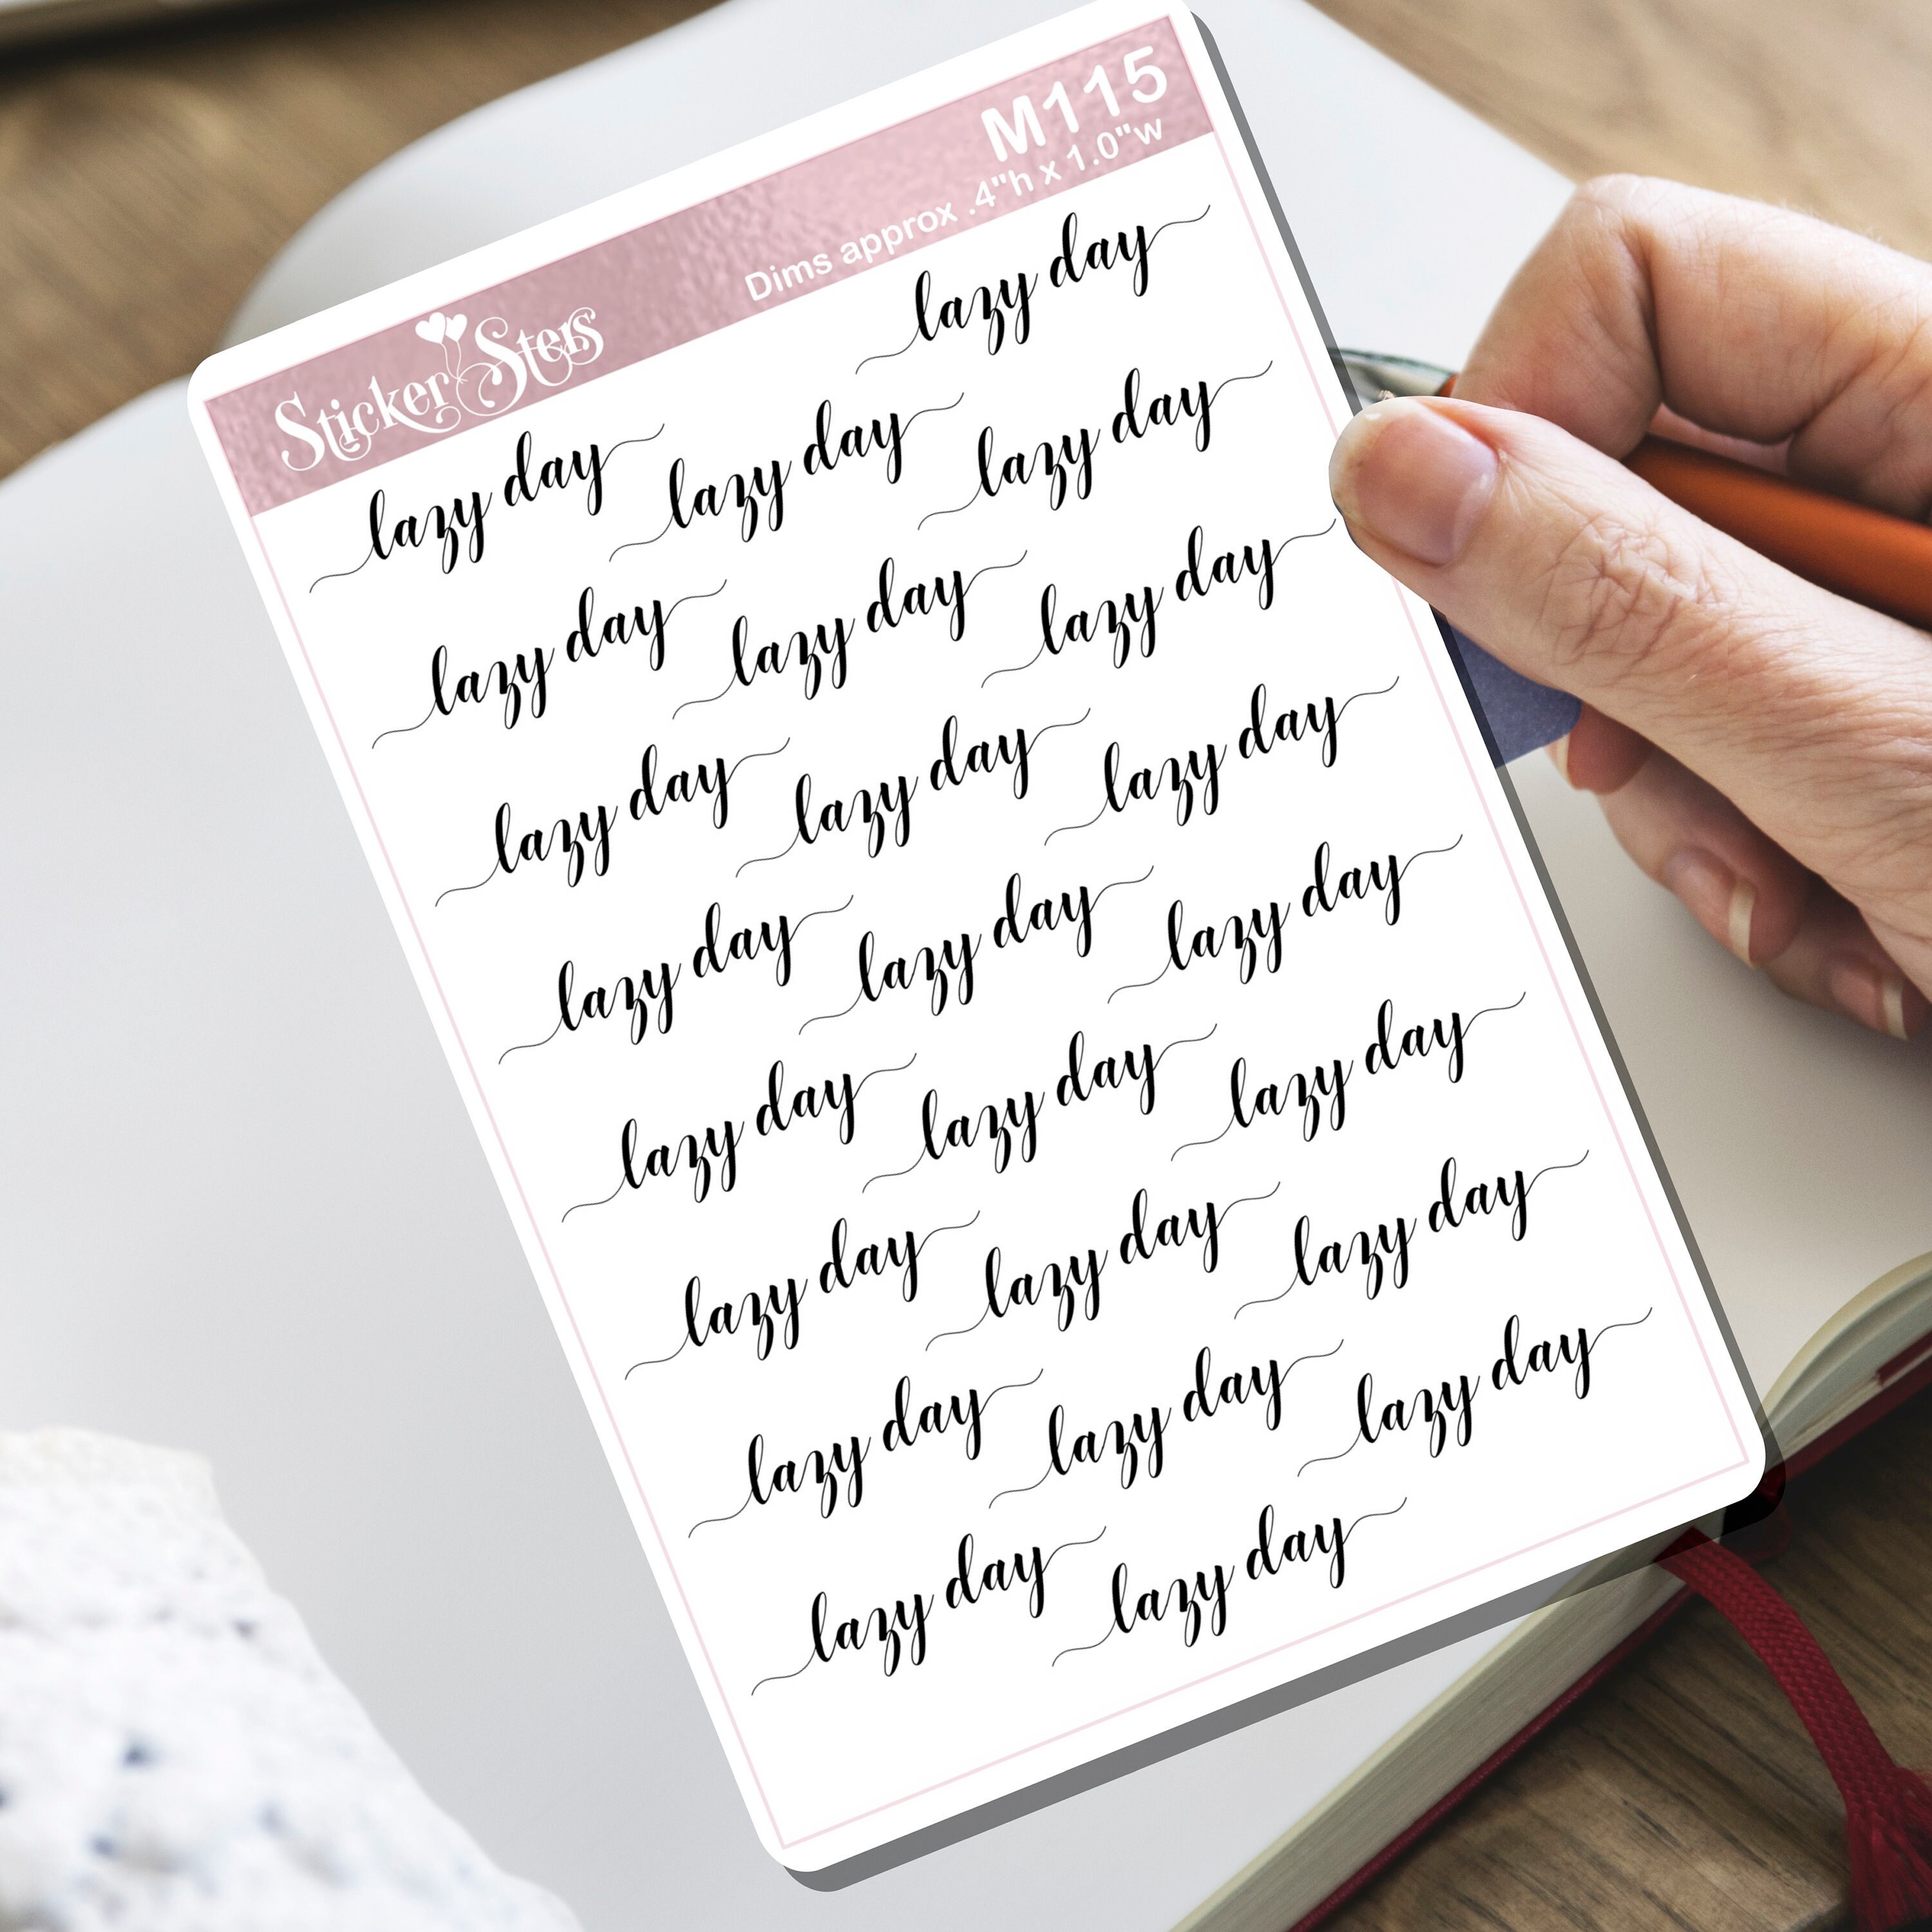 Sticker Sters
M115
Dims approx .4"h x 1.0"w
lazy day lazy day lazy day
lazy day lazy day lazy day
lazy day lazy day lazy day
lazy day lazy day lazy day
lazy day lazy day lazy day
lazy day lazy day lazy day
lazy day lazy day lazy day
lazy day lazy day lazy day